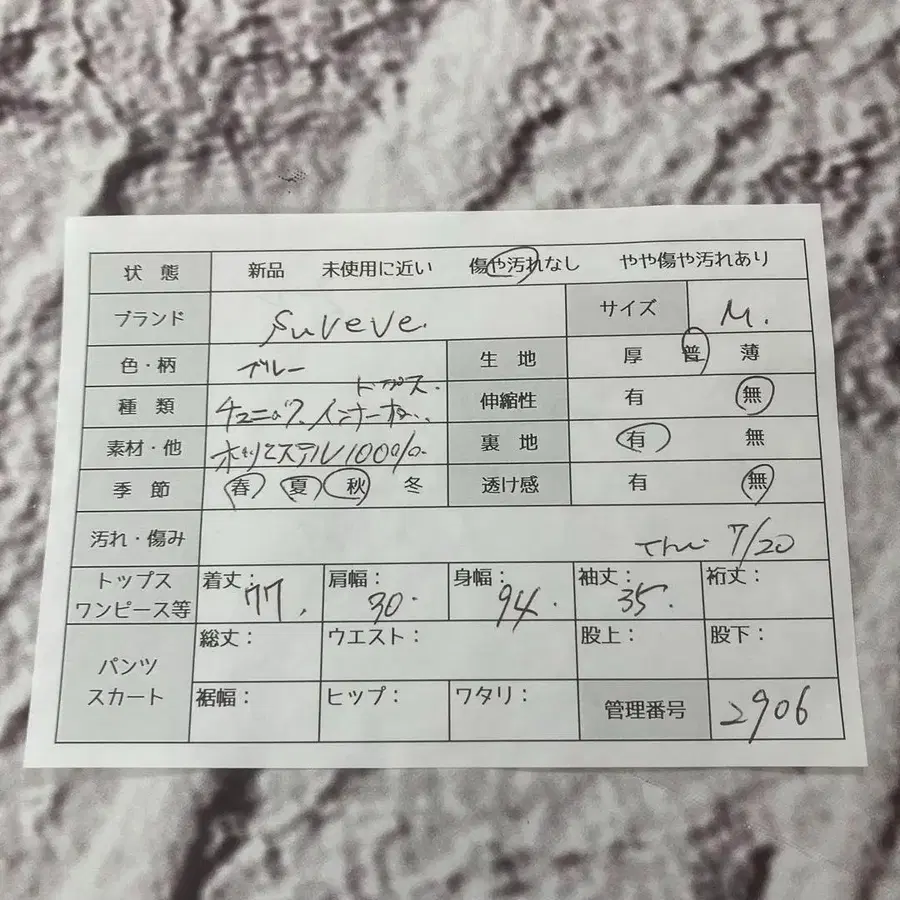 状態 新品 未使用に近い 傷や汚れなし やや傷や汚れあり
ブランド suveve. サイズ M.
色・柄 ブルー 生地 厚 普 薄
トップス.
種類 チュニック、インナー 伸縮性 有 無
素材・他 ポリエステル100%. 裏地 有 無
季節 春 夏 秋 冬 透け感 有 無
汚れ・傷み 7/20
トップス ワンピース等 着丈: 77. 肩幅: 30. 身幅: 94. 袖丈: 35. 裄丈:
パンツ スカート 総丈: ウエスト: 股上: 股下:
裾幅: ヒップ: ワタリ: 管理番号 2906